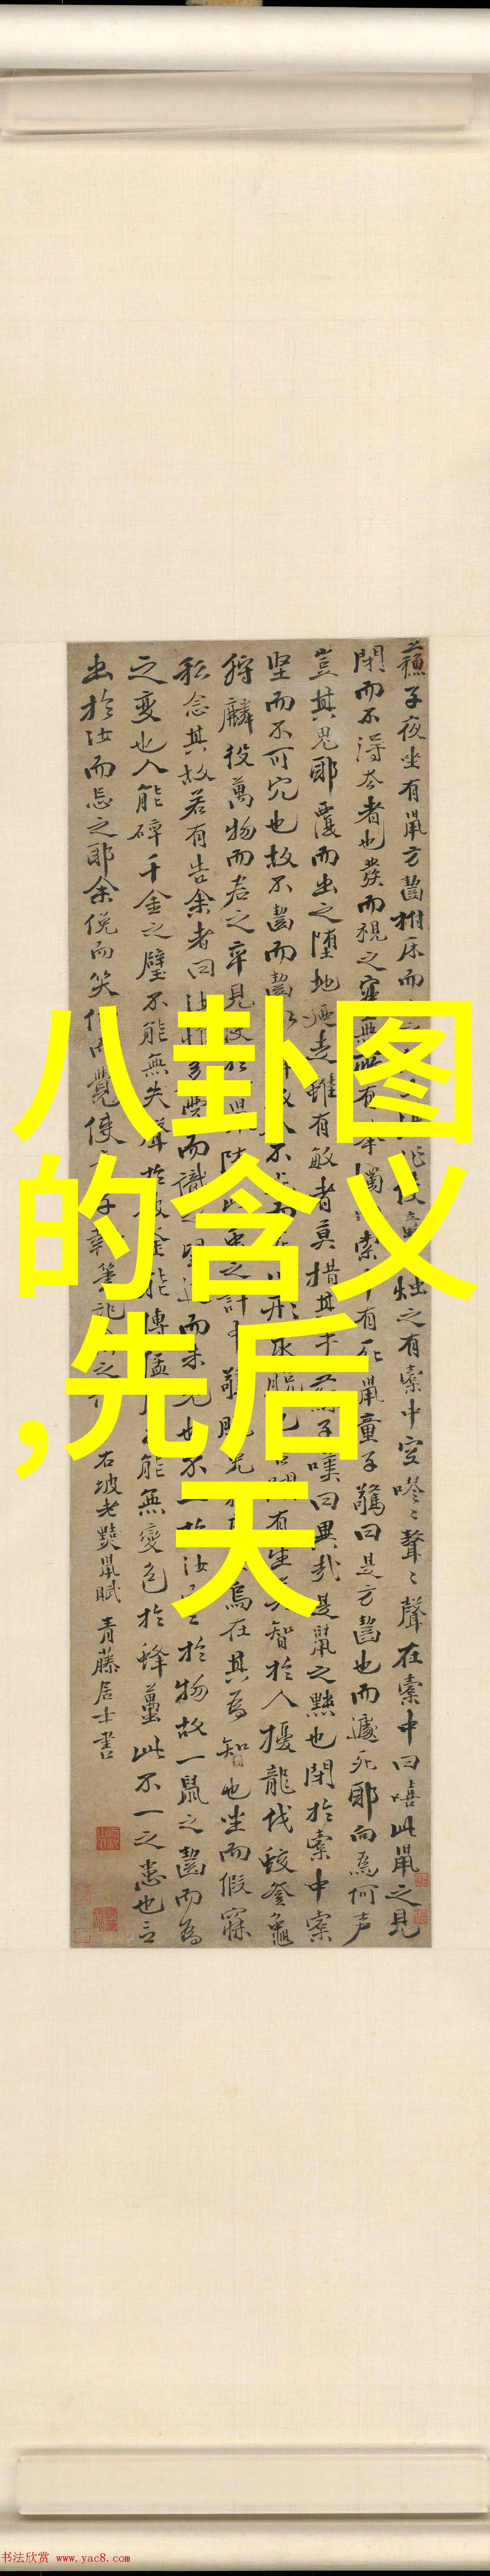 八卦图
的含义
,先后
天
蘇子夜坐有鼠方齧拊床而 使童 燭之有橐中空嘐〻聱〻聲在橐中曰嘻此鼠之見
閉而不得去者也發而視之寂無所有舉燭而索中有死鼠童子驚曰是方齧也而遽死耶向為何声
豈其鬼耶覆而出之墮地廼走雖有敏者莫措其手蘇子嘆曰異哉是鼠之黠也閉於橐中橐
堅而不可穴也故不齧而齧 不 而 形求脫也吾聞有生莫智於人擾龍伐蛟登龜
狩麟役萬物而君之卒見使於 鼠陷此蟲之計中驚脫兔 烏在其為智也坐而假寐
私念其故若有告余者曰汝惟多學而識之望道而未見也不一於汝 於物故一鼠之齧而為
之變也人能碎千金之璧不能無失聲於破釜能搏猛 能無變色於蜂蠆此不一之患也言
出於汝而忘之耶余俛而笑仰而覺使童子執筆記 之
右坡老黠鼠賦 青藤居士書
书法欣赏 www.yac8.com